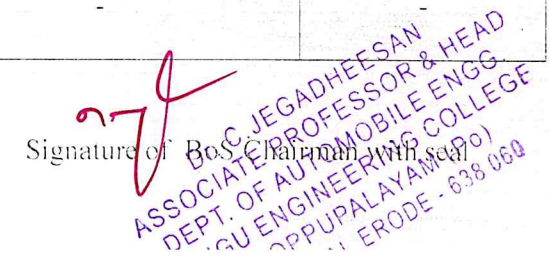 -
-
Signature of BoS Chairman with seal
Dr. C. JEGADHEESAN
ASSOCIATE PROFESSOR & HEAD
DEPT. OF AUTOMOBILE ENGG.
GU ENGINEERING COLLEGE
OPPUPALAYAM (Po)
ERODE - 638 060